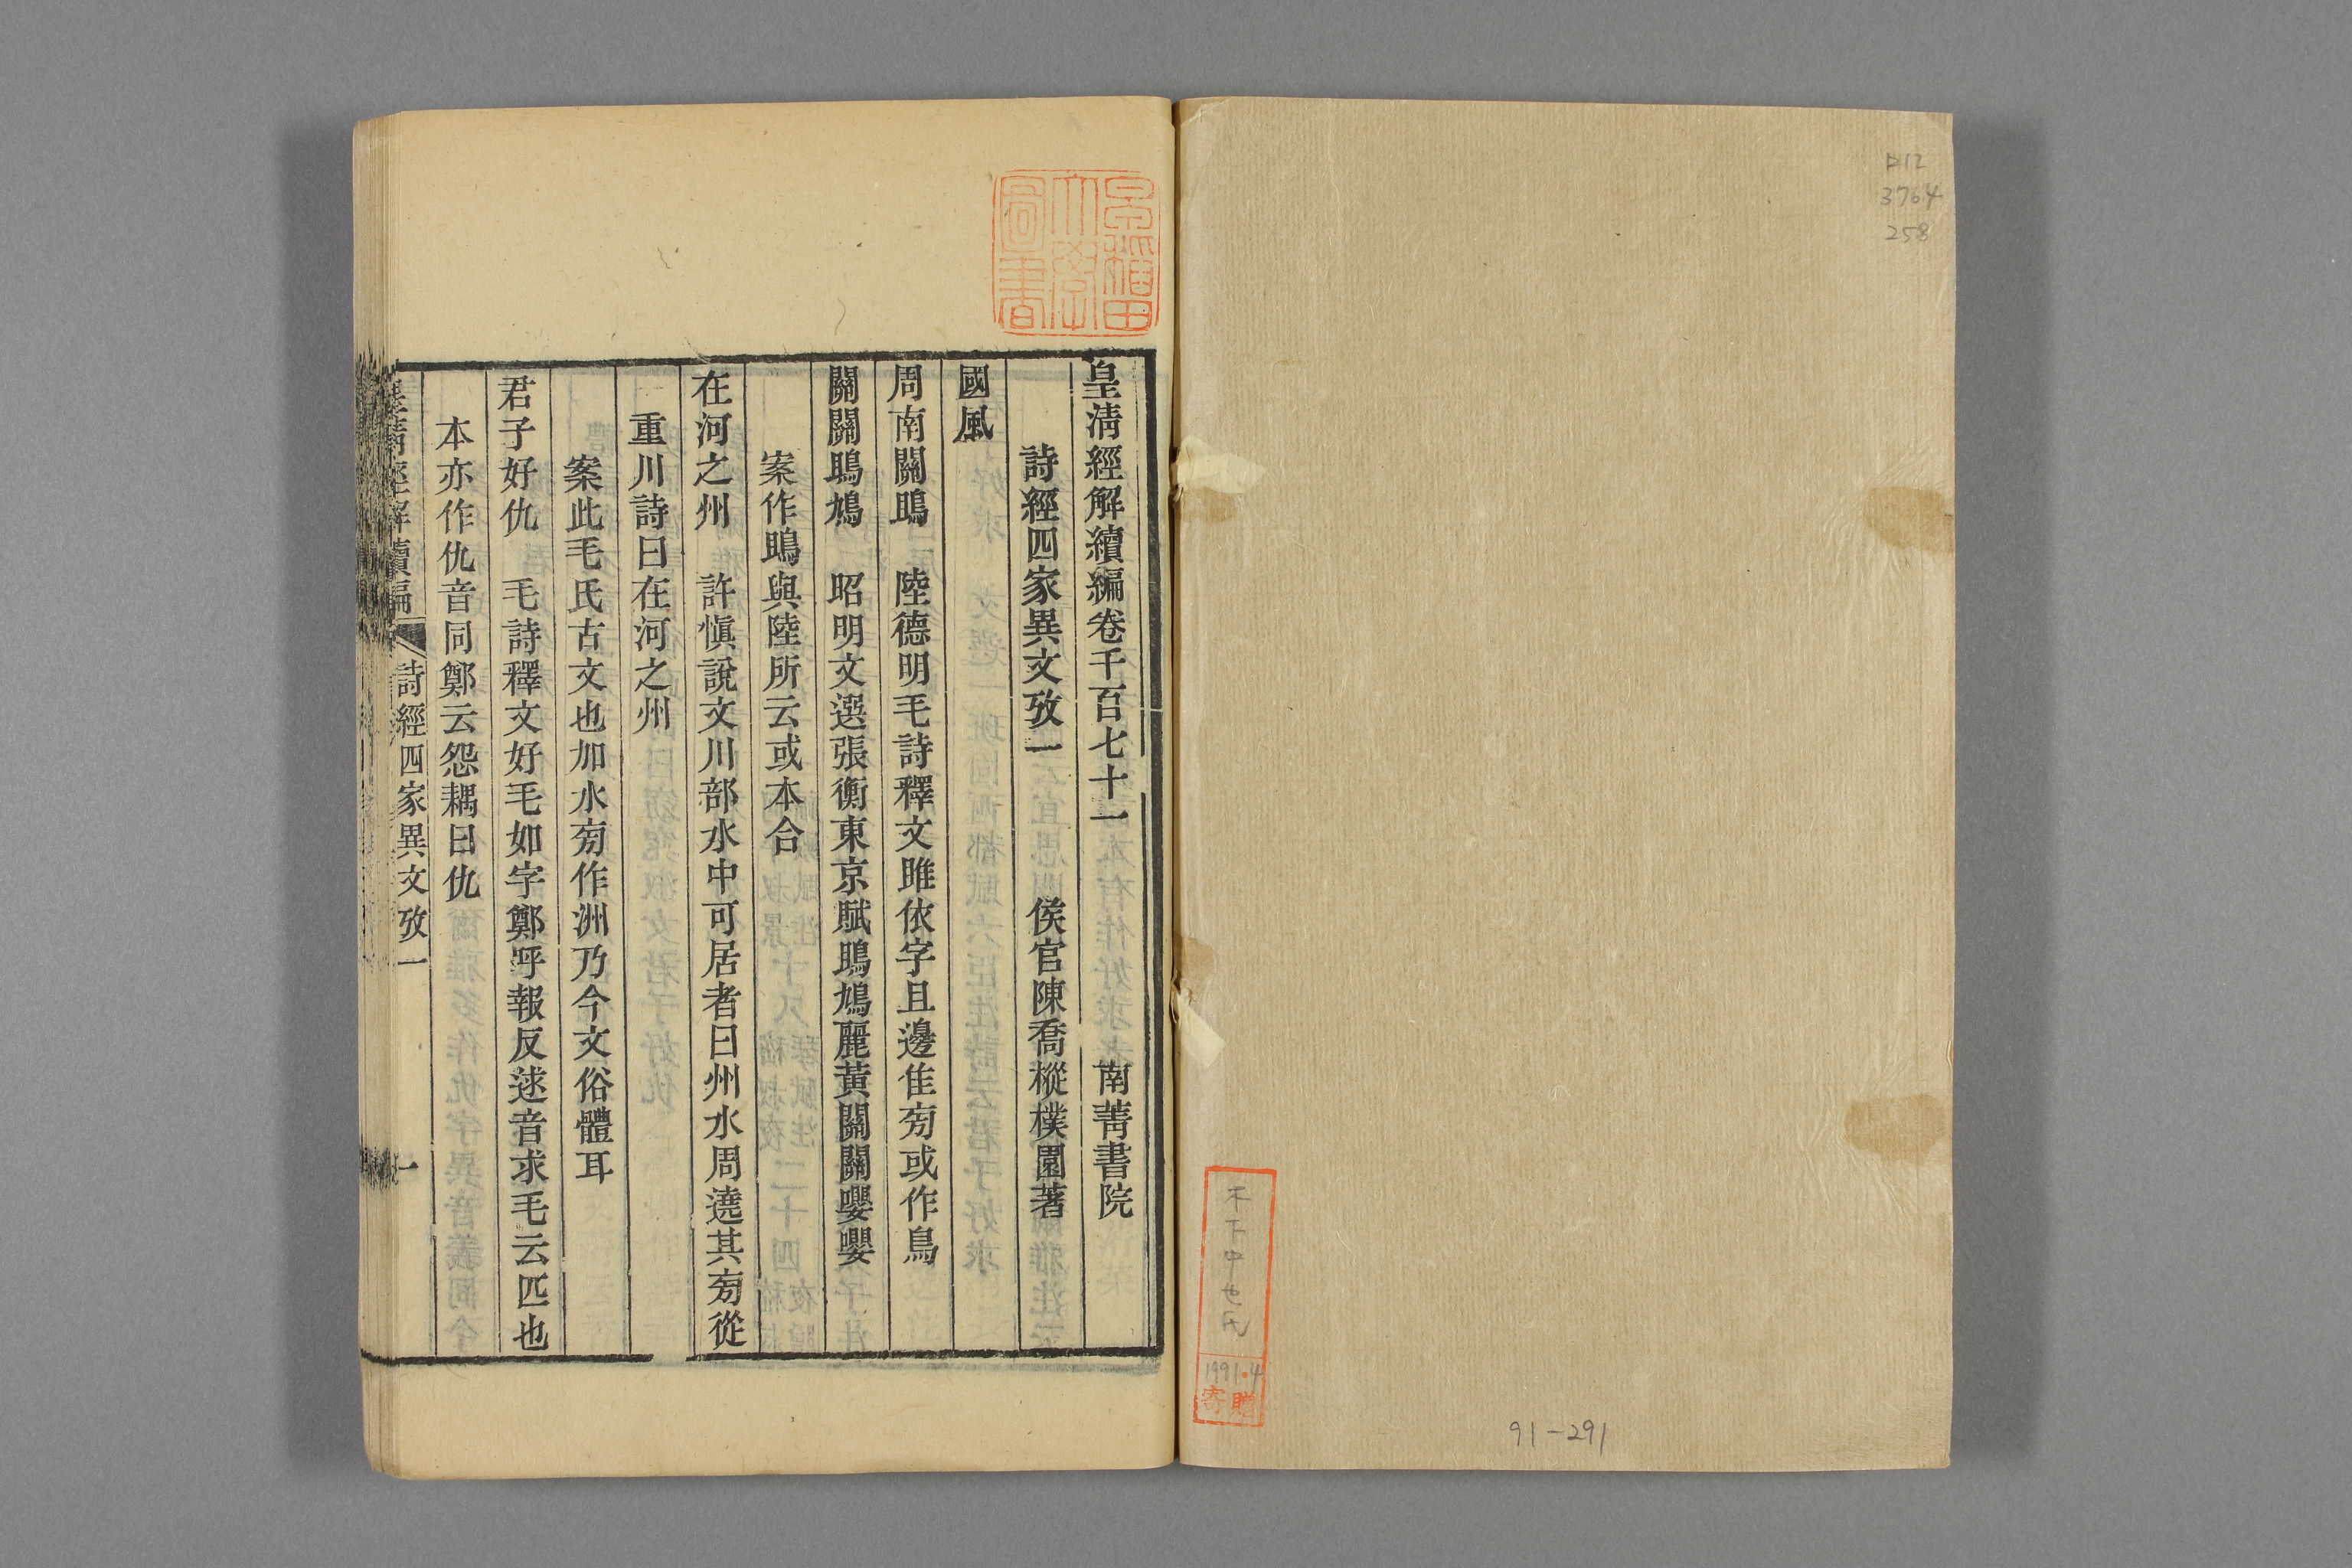 ロ12
3764
258
木下中也氏
1991.4
寄贈
91-291
早稲田大學圖書
皇清經解續編卷千百七十一　南菁書院
詩經四家異文攷一　侯官陳喬樅樸園著
國風
周南關鴡　陸德明毛詩釋文雎依字且邊隹㫄或作鳥
關關鴡鳩　昭明文選張衡東京賦鴡鳩麗黃關關嚶嚶
案作鴡與陸所云或本合
在河之州　許愼說文川部水中可居者曰州水周澆其㫄從
重川詩曰在河之州
案此毛氏古文也加水㫄作洲乃今文俗體耳
君子好仇　毛詩釋文好毛如字鄭呼報反逑音求毛云匹也
本亦作仇音同鄭云怨耦曰仇
皇清經解續編　詩經四家異文攷一　一